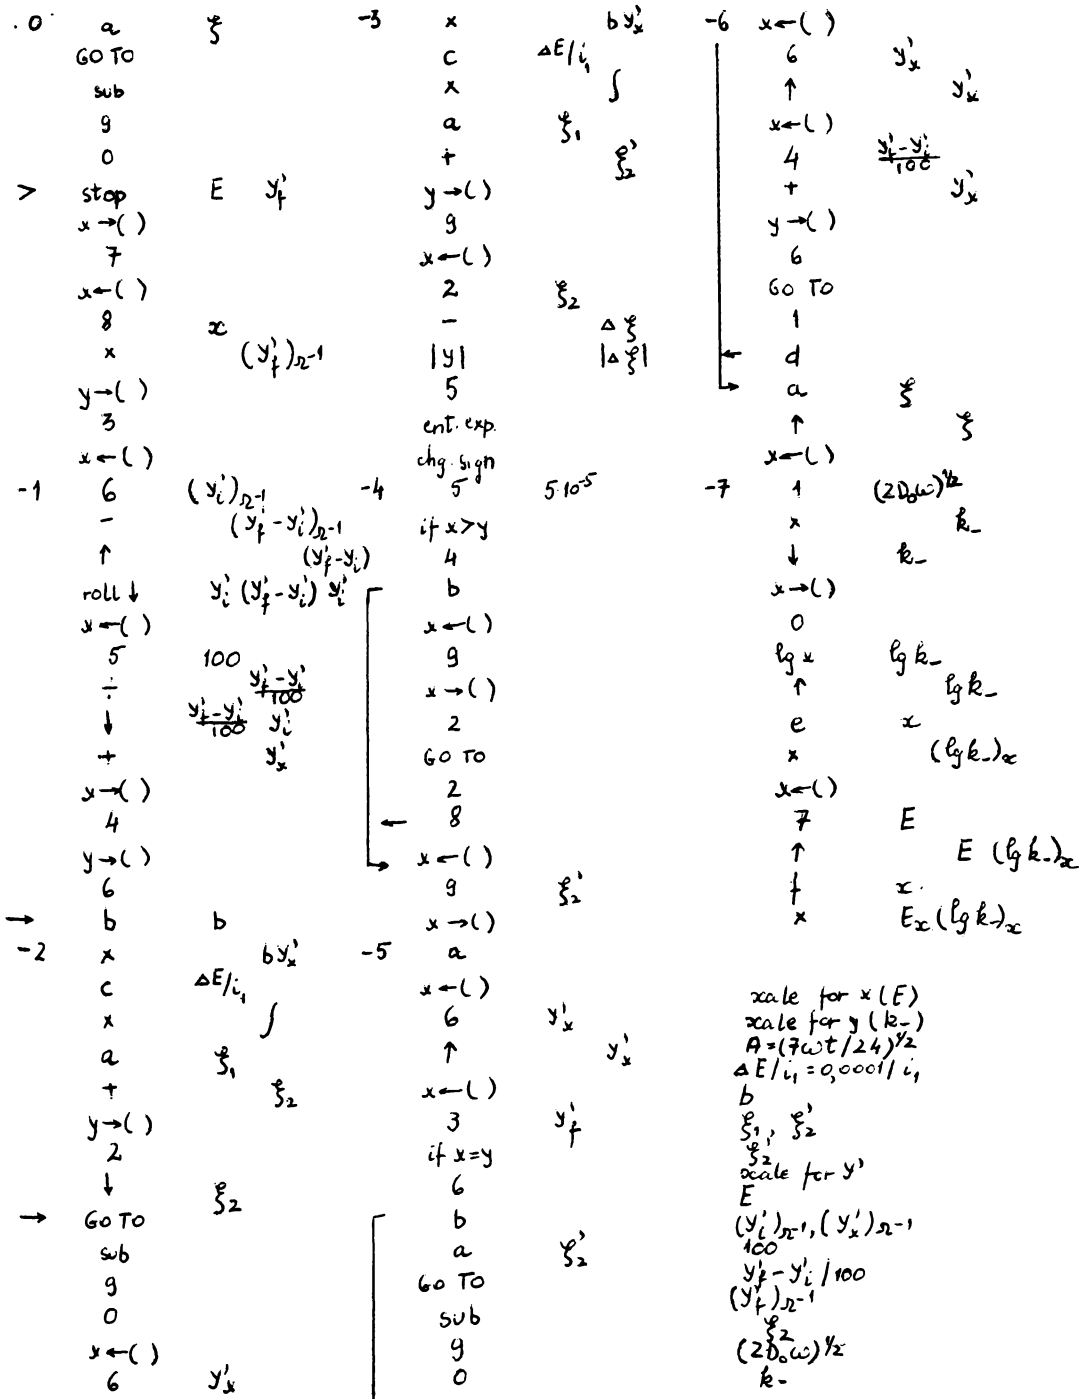 .0 a ξ
GO TO
sub
9
0
> stop E y'f
x→( )
7
x←( )
8 x
x (y'f)Ω-1
y→( )
3
x←( )
-1 6 (y'i)Ω-1
- (y'f-y'i)Ω-1
↑ (y'f-yi)
roll↓ y'i (y'f-y'i) y'i
x←( )
5 100
÷ y'f-y'i/100
↓ y'f-y'i/100 y'i
+ y'x
x→( )
4
y→( )
6
→ b b
-2 x by'x
c ΔE/i1
x ∫
a ξ1
+ ξ2
y→( )
2
↓ ξ2
→ GO TO
sub
9
0
x←( )
6 y'x
-3 x by'x
c ΔE/i1
x ∫
a ξ1
+ ξ'2
y→( )
9
x←( )
2 ξ2
- Δξ
|y| |Δξ|
5
ent.exp.
chg.sign
-4 5 5·10-5
if x>y
4
b
x←( )
9
x→( )
2
GO TO
2
← 8
x←( )
9 ξ2'
x→( )
-5 a
x←( )
6 y'x
↑ y'x
x←( )
3 y'f
if x=y
6
b
a ξ2'
GO TO
sub
9
0
-6 x←( )
6 y'x
↑ y'x
x←( )
4 y'f-y'i/100
+ y'x
y→( )
6
GO TO
1
← d
a ξ
↑ ξ
x←( )
-7 1 (2D0ω)1/2
x k-
↓ k-
x→( )
0
lg x lg k-
↑ lg k-
e x
x (lg k-)x
x←( )
7 E
↑ E (lg k-)x
f x.
x Ex(lg k-)x
xale for x(E)
xale for y(k-)
A=(7ωt/24)1/2
ΔE/i1=0,0001/i1
b
ξ1, ξ2'
ξ2'
xale for y'
E
(y'i)Ω-1, (y'x)Ω-1
100
y'f-y'i/100
(y'f)Ω-1
ξ2
(2D0ω)1/2
k-